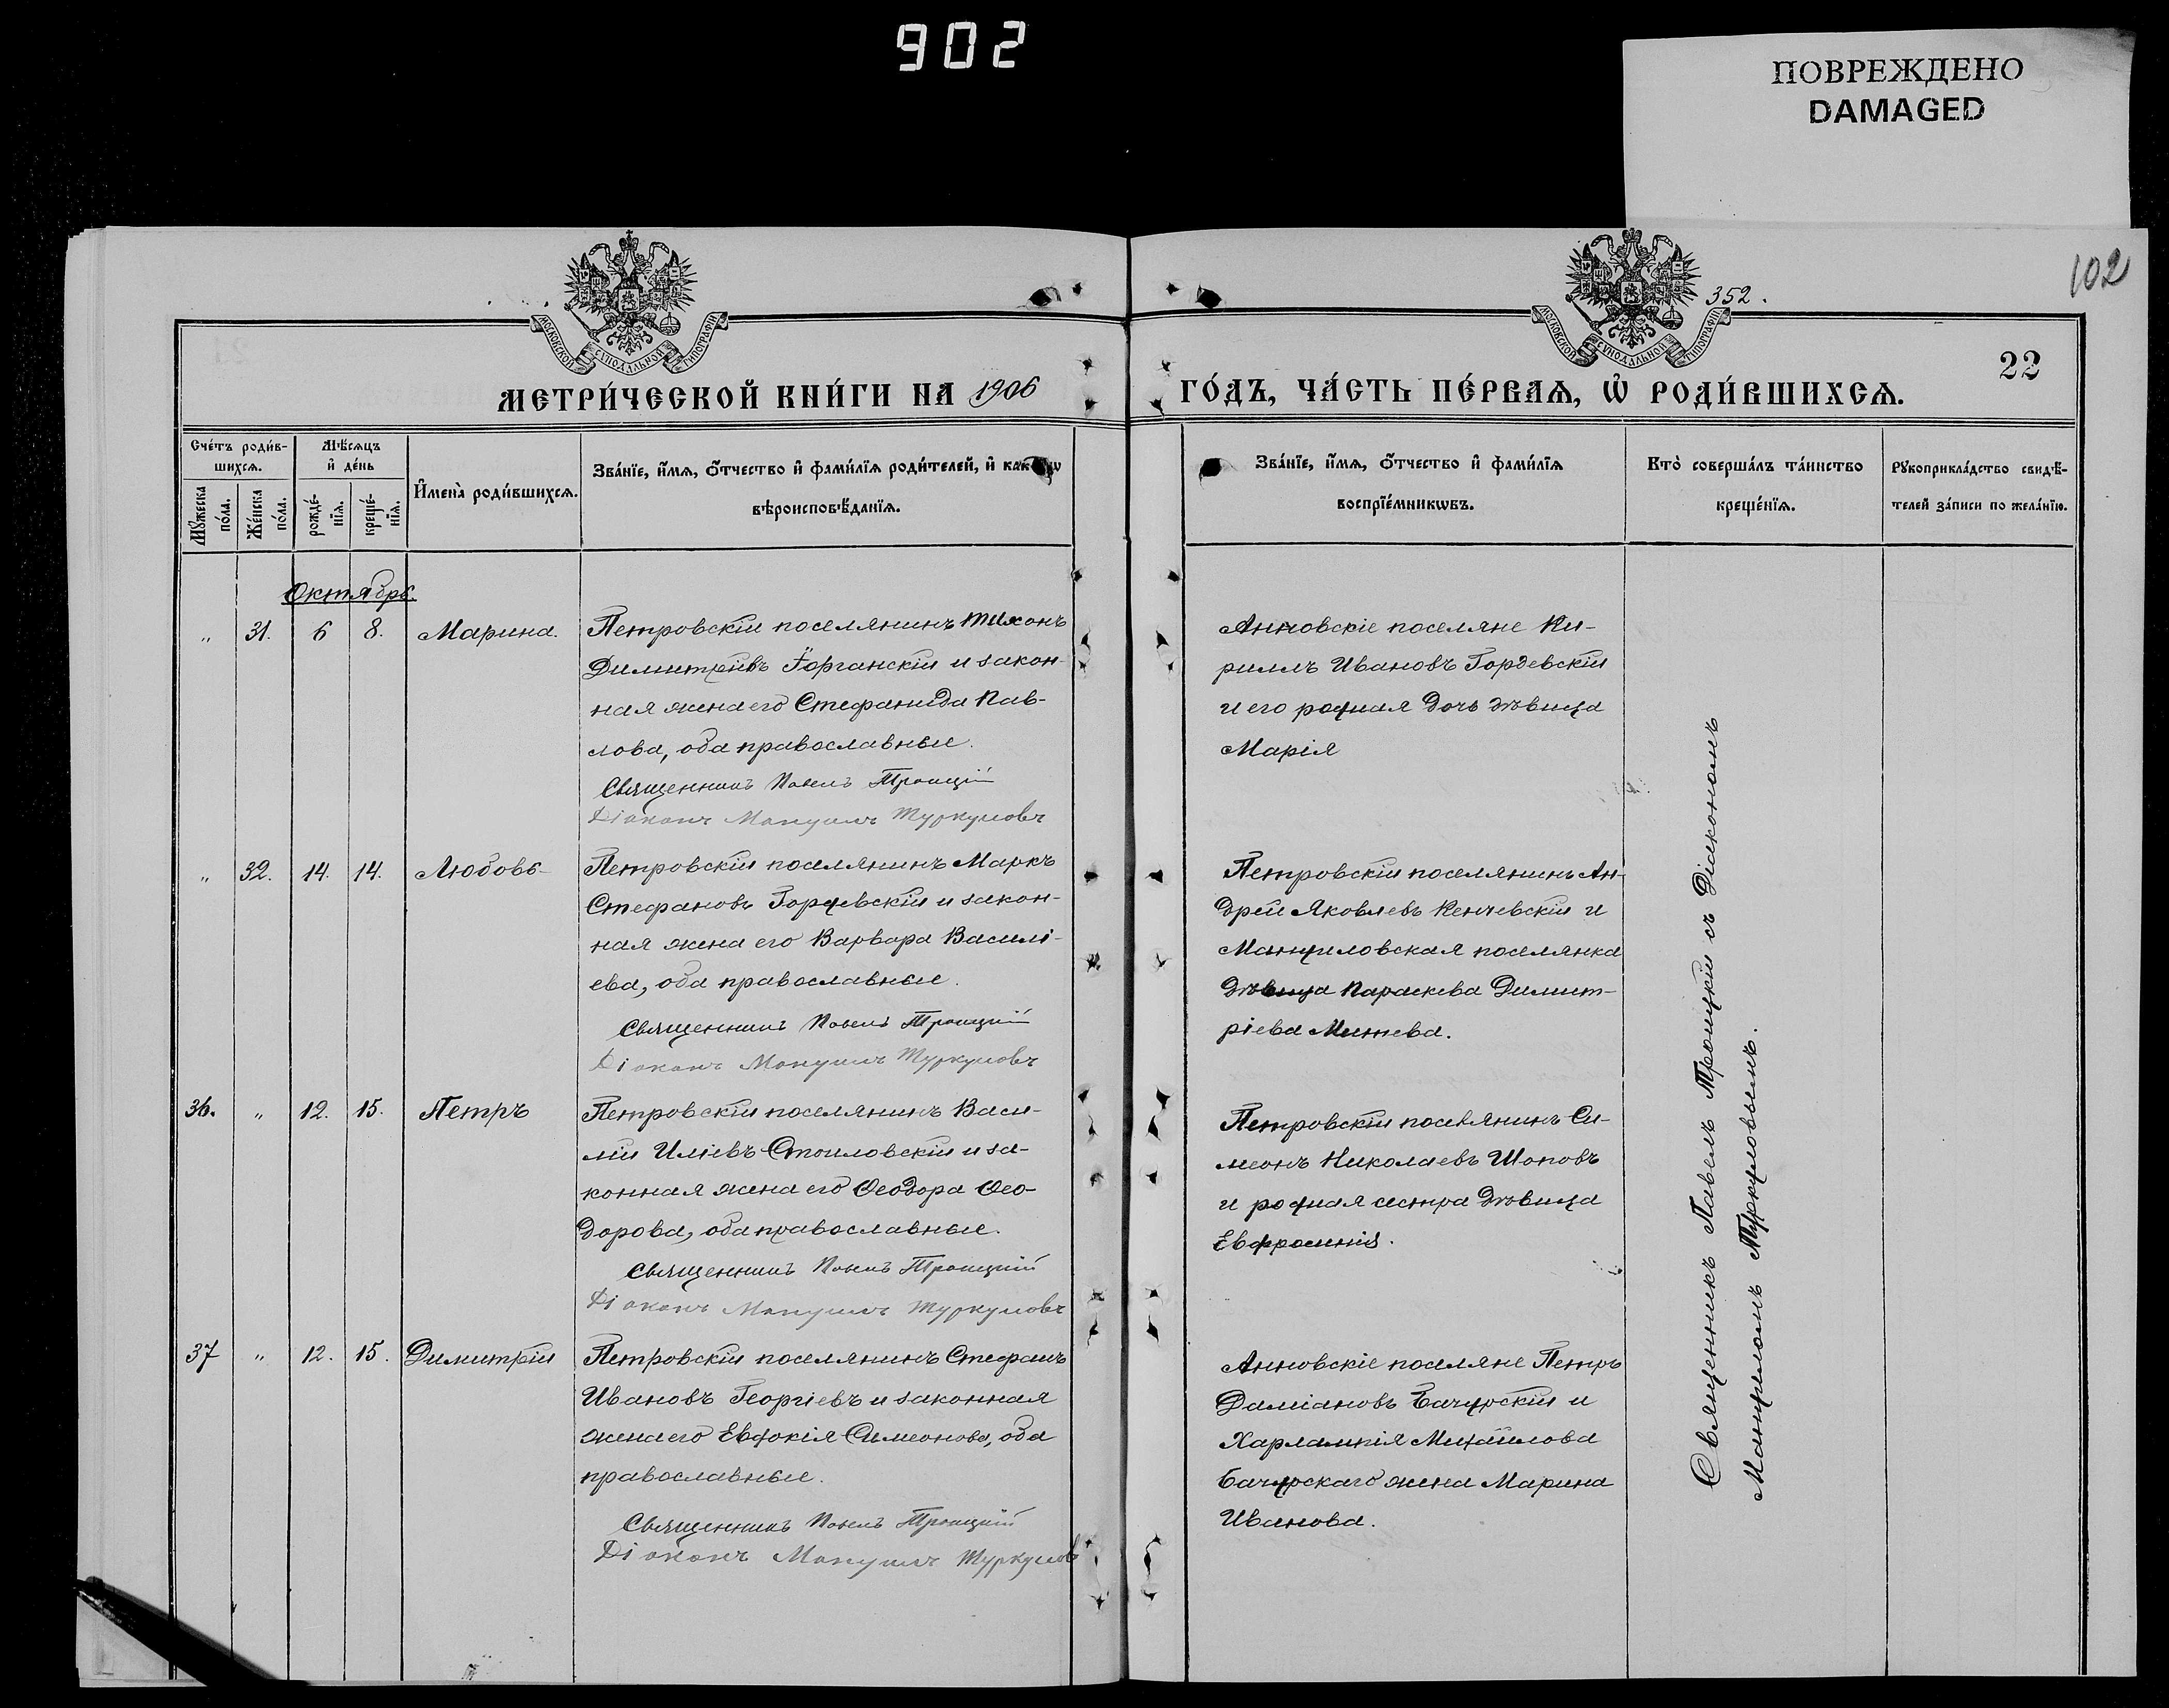 902
ПОВРЕЖДЕНО
DAMAGED
102
352.
22
МОСКОВСКОЙ СѴНОДАЛЬНОЙ ТИПОГРАФІИ
МОСКОВСКОЙ СѴНОДАЛЬНОЙ ТИПОГРАФІИ
МЕТРИ́ЧЕСКОЙ КНИ́ГИ НА 1906
ГО́ДЪ, ЧА́СТЬ ПЕ́РВАѦ, Ѡ҆ РОДИ́ВШИХСѦ.
Сче́тъ роди́в-
шихсѧ.
Мꙋ́жеска по́ла.
Же́нска по́ла.
Мѣ́сѧцъ
и҆ де́нь
рожде́-
нїѧ.
креще́-
нїѧ.
И҆мена̀ роди́вшихсѧ.
Зва́нїе, и҆́мѧ, ѻ҆́тчество и҆ фами́лїѧ роди́телей, и҆
вѣроисповѣ́данїѧ.
Зва́нїе, и҆́мѧ, ѻ҆́тчество и҆ фами́лїѧ
воспрїе́мникѡвъ.
Кто̀ соверша́лъ та́инство
креще́нїѧ.
Рꙋкоприкла́дство свидѣ́-
телей за́писи по жела́нїю.
Октябрь.
„ 31. 6 8. Марина.
Петровскій поселянинъ Тихонъ
Димитріевъ и закон-
ная жена его Стефанида Пав-
лова, оба православные.
Священникъ Павелъ Троицкій
Діаконъ Мануилъ Туркуловъ
Анновскіе поселяне Ки-
риллъ Ивановъ Гордевскій
и его родная дочь дѣвица
Марія
„ 32. 14. 14. Любовь
Петровскій поселянинъ Маркъ
Стефановъ Горчевскій и закон-
ная жена его Варвара Василі-
ева, оба православные.
Священникъ Павелъ Троицкій
Діаконъ Мануилъ Туркуловъ
Петровскій поселянинъ Ан-
дрей Яковлевъ Кенчевскій и
Мануиловская поселянка
дѣвица Параскева Димит-
ріева Митева.
36. „ 12. 15. Петръ
Петровскій поселянинъ Васи-
лій Иліевъ Стоиловскій и за-
конная жена его Ѳеодора Ѳео-
дорова, оба православные.
Священникъ Павелъ Троицкій
Діаконъ Мануилъ Туркуловъ
Петровскій поселянинъ Си-
меонъ Николаевъ Шоповъ
и родная сестра дѣвица
Евфросинія.
37 „ 12. 15. Димитрій
Петровскій поселянинъ Стефанъ
Ивановъ Георгіевъ и законная
жена его Евдокія Симеонова, оба
православные.
Священникъ Павелъ Троицкій
Діаконъ Мануилъ Туркулов
Анновскіе поселяне Петръ
Даміановъ Бачурскій и
Харлампія Михайлова
Бачурскаго жена Марина
Иванова.
Священникъ Павелъ Троицкій съ Діакономъ
Мануиломъ Туркуловымъ.